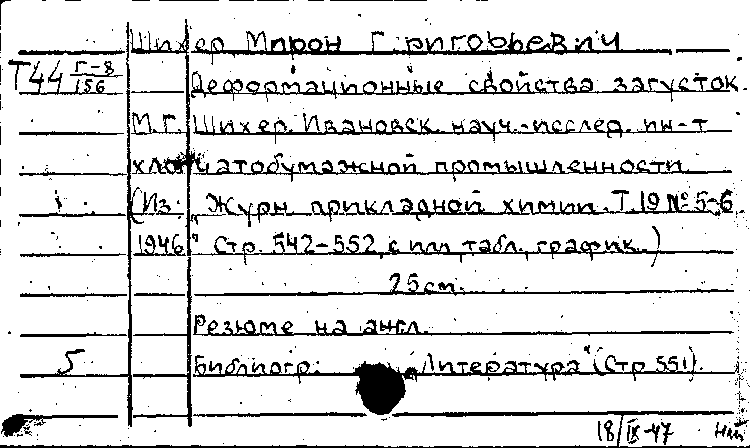 Шихер, Мирон Григорьевич
Т44 Г-8/156 Деформационные свойства загусток.
М.Г. Шихер. Ивановск. науч.-исслед. ин-т
хлопчатобумажной промышленности.
(Из „Журн. прикладной химии. Т.19 № 5-6
1946" Стр. 542-552, с илл, табл., график.)
25 см.
Резюме на англ.
5 Библиогр: „Литература" (Стр 551).
18/IX-47